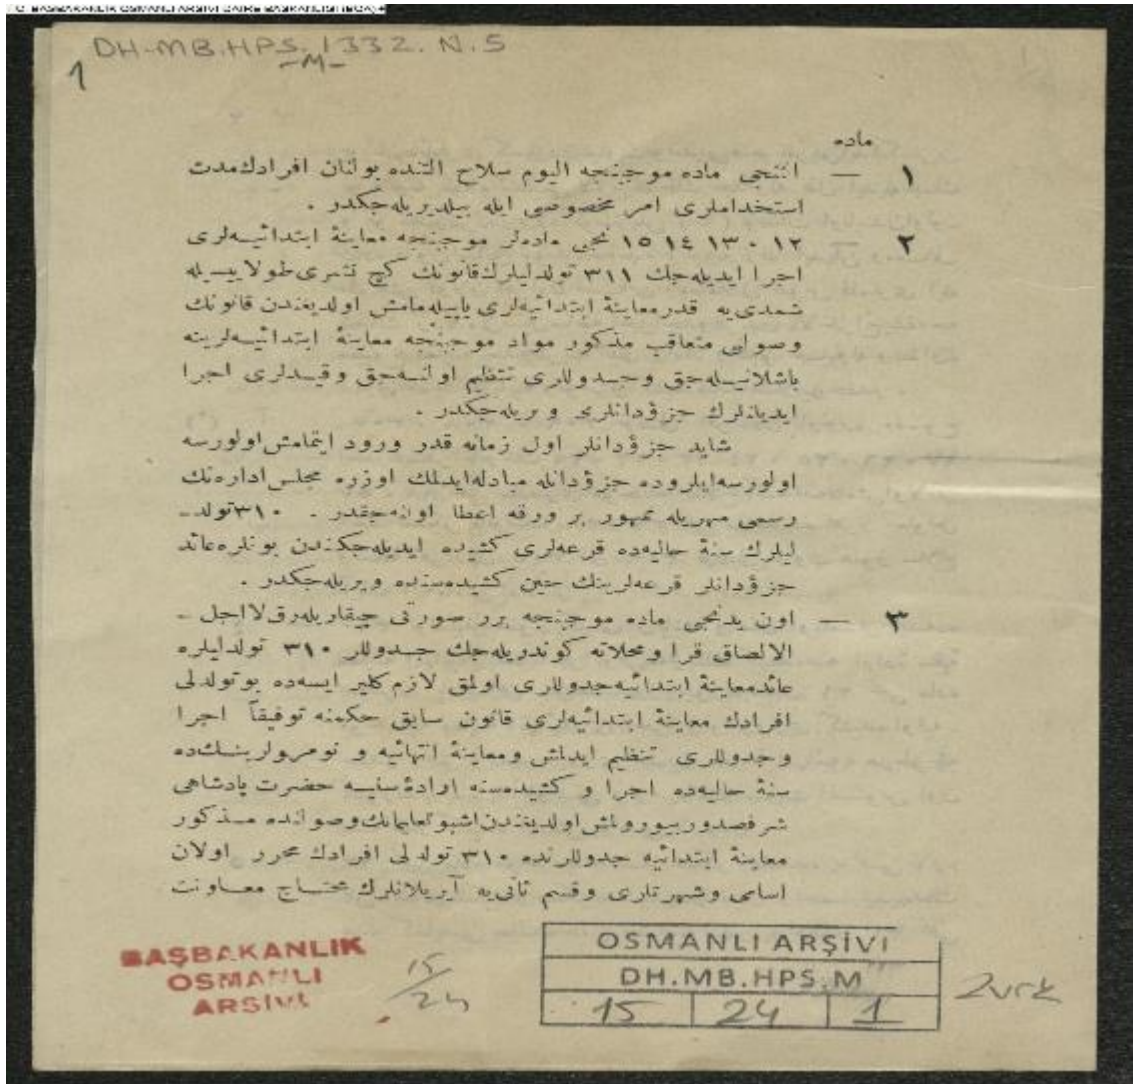 T.C. BAŞBAKANLIK OSMANLI ARŞİVİ DAİRE BAŞKANLIĞI (BOA)
DH-MB.HPS. 1332. N. 5
-M-
1
ماده
١ — انتجی ماده موجبنجه الیوم سلاح التنده بولنان افرادك مدت
استخداملری امر مخصوصی ایله بیلدیریله جكدر .
٢ ١٢ ٠ ١٣ ١٤ ١٥ نجی مادەلر موجبنجه معاینهٔ ابتدائیه‌لری
اجرا ایدیله‌جك ٣١١ تولدلیلرك قانونك كچ نشری طولاییسیله
شمدی‌یه قدر معاینهٔ ابتدائیه‌لری یاپیله‌مامش اولدیغندن قانونك
وصولی متعاقب مذكور مواد موجبنجه معاینهٔ ابتدائیه‌لرینه
باشلانیله‌جق وجدوللری تنظیم اولنه‌جق وقیدلری اجرا
ایدیلنلرك جزؤدانلری ویریله‌جكدر .
شاید جزؤدانلر اول زمانه قدر ورود ایتمامش اولورسه
اولورسه ایلروده جزؤدانله مبادله ایدلمك اوزره مجلس اداره‌نك
رسمی مهریله ممهور بر ورقه اعطا اولنه‌جقدر . ٣١٠ تولد ـ
لیلرك سنهٔ حالیه‌ده قرعه‌لری كشیده ایدیله‌جكندن بونلره عائد
جزؤدانلر قرعه‌لرینك حین كشیده‌سنده ویریله‌جكدر .
٣ — اون یدنجی ماده موجبنجه برر صورتی چیقاریله‌رق لااجل ـ
الالصاق قرا ومحلاته كوندریله‌جك جدوللر ٣١٠ تولدلیلره
عائد معاینهٔ ابتدائیه جدوللری اولمق لازم كلیر ایسه‌ده بو تولدلی
افرادك معاینهٔ ابتدائیه‌لری قانون سابق حكمنه توفیقاً اجرا
وجدوللری تنظیم ایدلمش ومعاینهٔ انتهائیه و نومرولرینك‌ده
سنهٔ حالیه‌ده اجرا و كشیده‌سنه ارادهٔ سنیه حضرت پادشاهی
شرفصدور بیورولمش اولدیغندن اشبو تعلیماتك وصولنده مذكور
معاینهٔ ابتدائیه جدوللرنده ٣١٠ تولدلی افرادك محرر اولان
اسامی وشهرتلری وقسم ثانی‌یه آیریلانلرك محتاج معاونت
BAŞBAKANLIK
OSMANLI
ARŞİVİ
15/24
OSMANLI ARŞİVİ
DH.MB.HPS.M
15 24 1